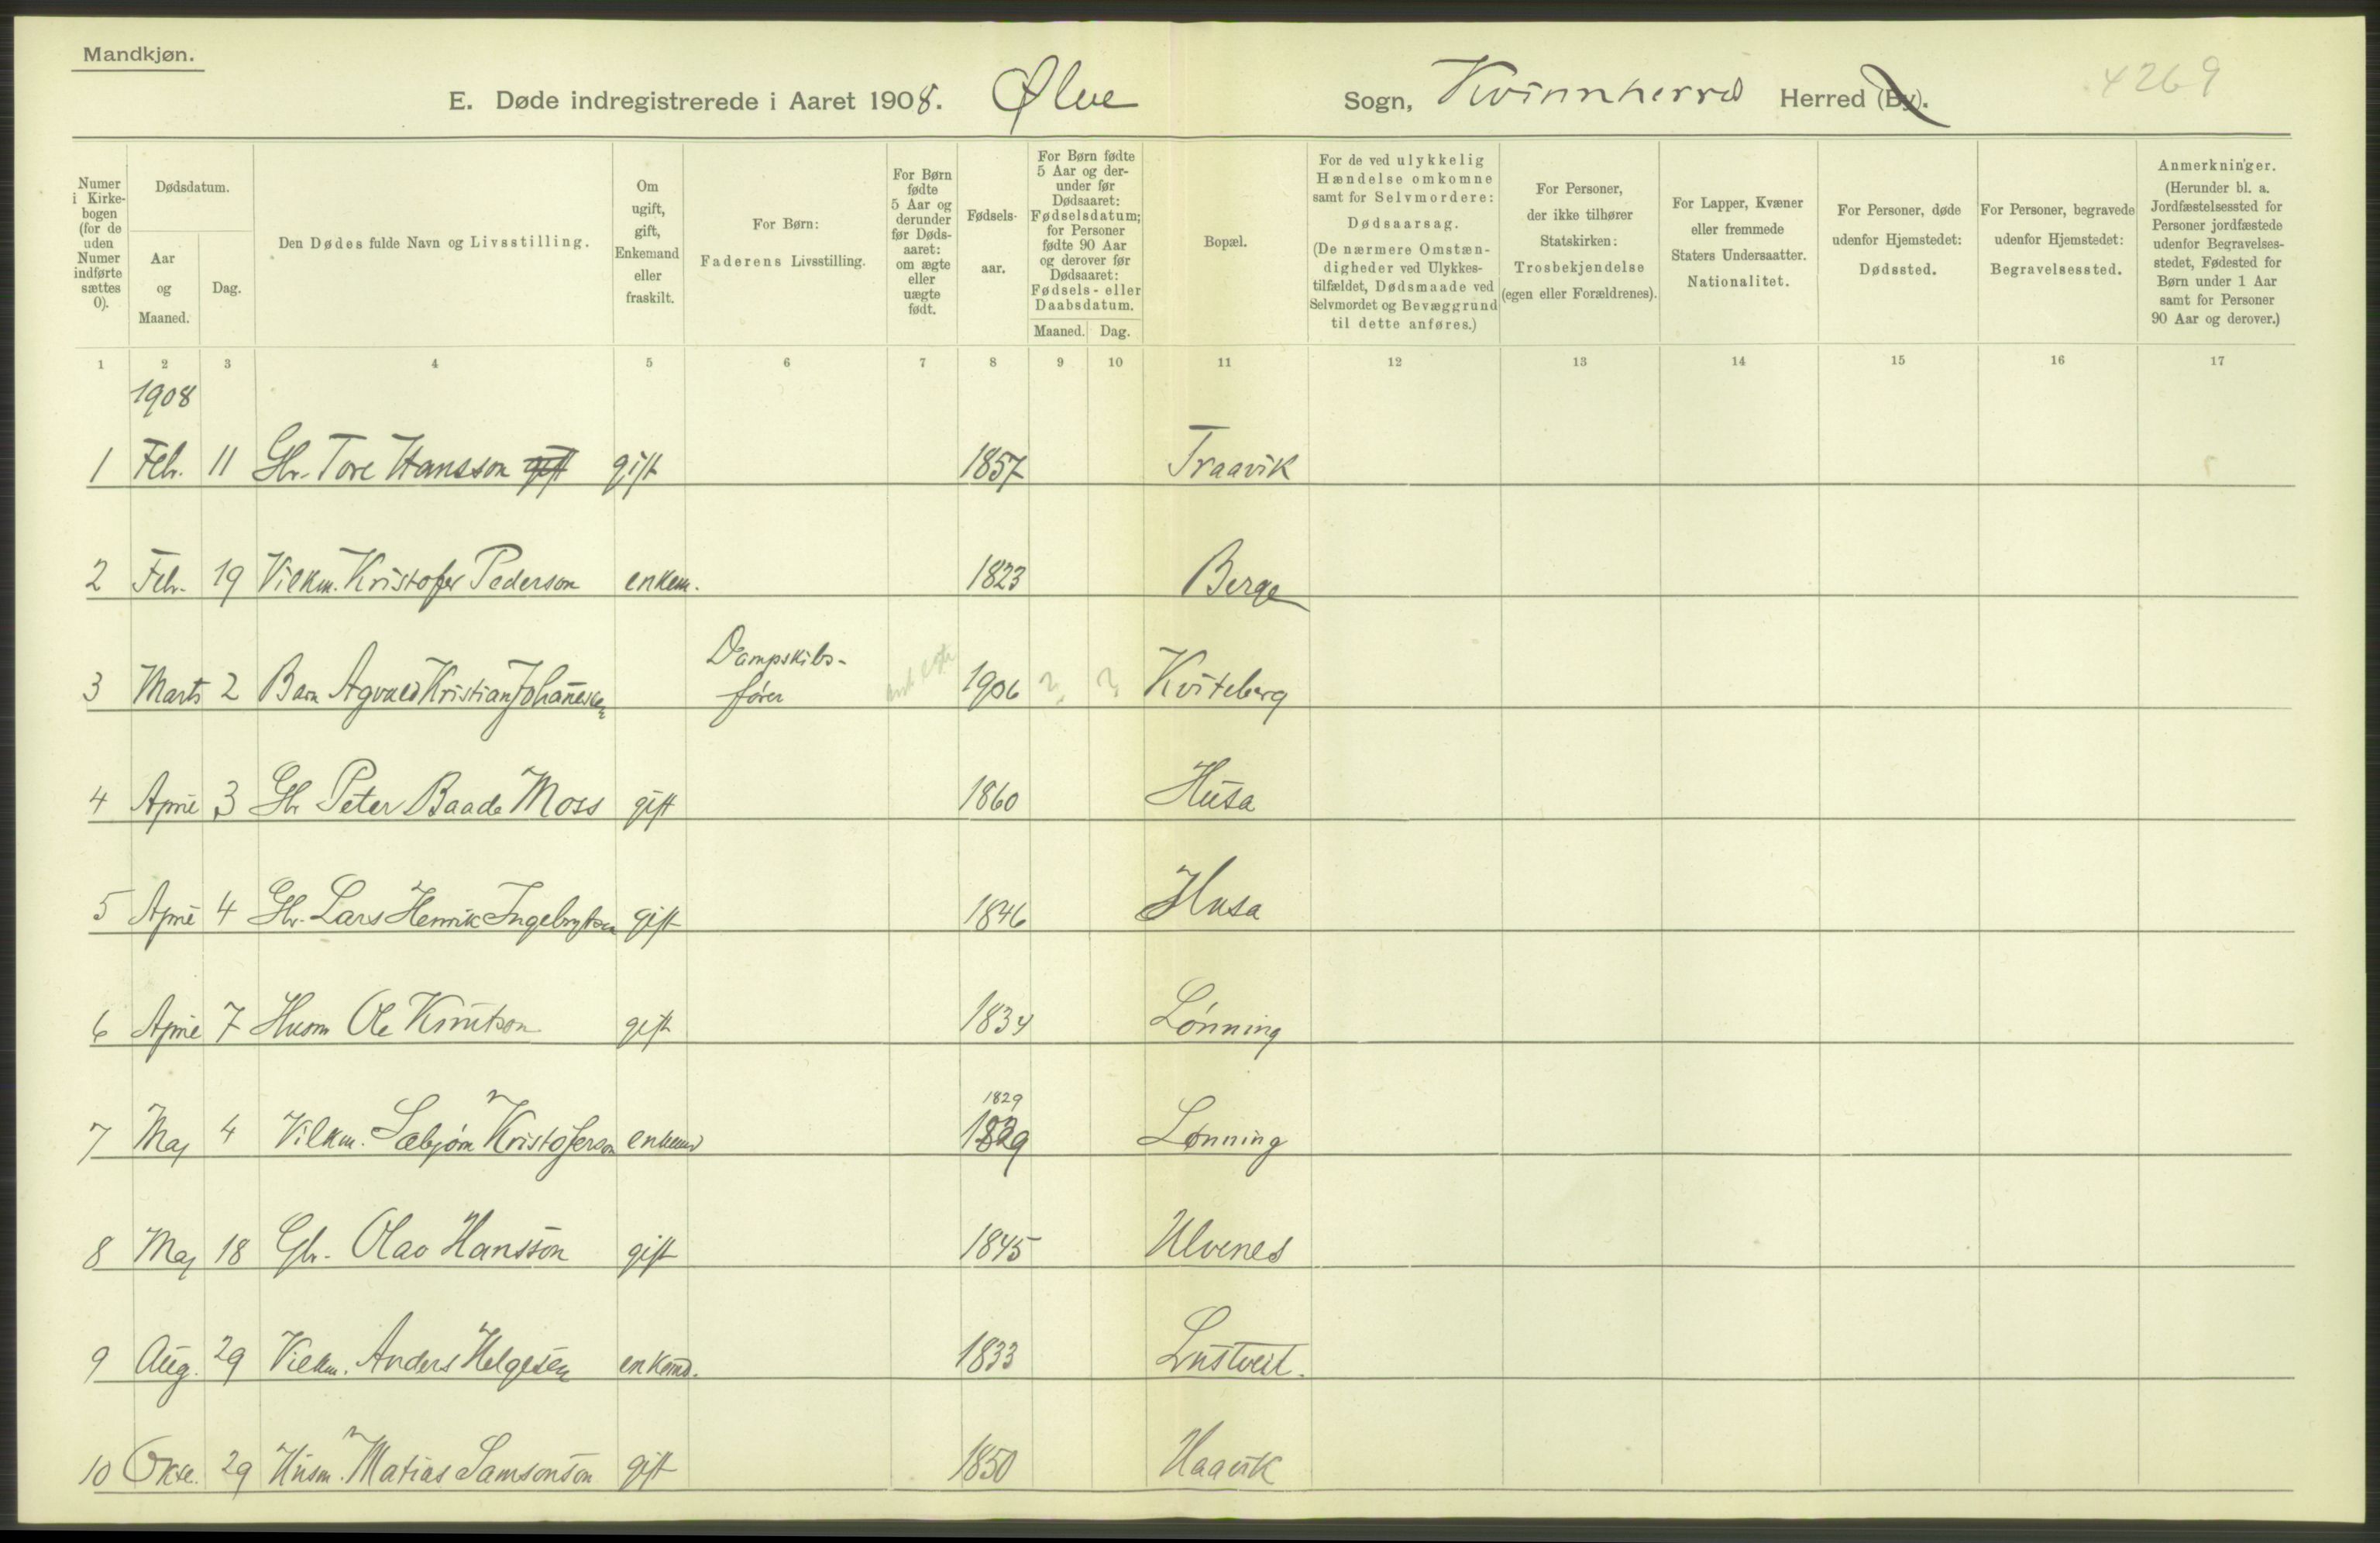 Mandkjøn.
E. Døde indregistrerede i Aaret 1908. Ølve Sogn, Kvinnherred Herred (By).
4269
Numer i Kirkebogen (for de uden Numer indførte sættes 0).
Dødsdatum.
Aar og Maaned.
Dag.
Den Dødes fulde Navn og Livsstilling.
Om ugift, gift, Enkemand eller fraskilt.
For Børn: Faderens Livsstilling.
For Børn fødte 5 Aar og derunder før Dødsaaret: om ægte eller uægte født.
Fødselsaar.
For Børn fødte 5 Aar og derunder før Dødsaaret: Fødselsdatum; for Personer fødte 90 Aar og derover før Dødsaaret: Fødsels- eller Daabsdatum.
Maaned. Dag.
Bopæl.
For de ved ulykkelig Hændelse omkomne samt for Selvmordere: Dødsaarsag. (De nærmere Omstændigheder ved Ulykkestilfældet, Dødsmaade ved Selvmordet og Bevæggrund til dette anføres.)
For Personer, der ikke tilhører Statskirken: Trosbekjendelse (egen eller Forældrenes).
For Lapper, Kvæner eller fremmede Staters Undersaatter. Nationalitet.
For Personer, døde udenfor Hjemstedet: Dødssted.
For Personer, begravede udenfor Hjemstedet: Begravelsessted.
Anmerkninger. (Herunder bl. a. Jordfæstelsessted for Personer jordfæstede udenfor Begravelsesstedet, Fødested for Børn under 1 Aar samt for Personer 90 Aar og derover.)
1 2 3 4 5 6 7 8 9 10 11 12 13 14 15 16 17
1908
1 Febr. 11 Gbr. Tore Hansson gift gift 1857 Traavik
2 Febr. 19 Vilkm. Kristofer Pederson enkem. 1823 Berge
3 Marts 2 Barn Agvald Kristian Johannesen Dampskibsfører 1906 ? ? Kviteberg
4 April 3 Gbr Peter Baade Moss gift 1860 Husa
5 April 4 Gbr. Lars Henrik Ingebrigtson gift 1846 Husa
6 April 7 Husm Ole Knutson gift 1834 Lønning
1829
7 Maj 4 Vilkm. Sæbjørn Kristoferson enkemd 1829 Lønning
8 Maj 18 Gbr. Olav Hansson gift 1845 Ulvenes
9 Aug. 29 Vilkm. Anders Helgesen enkemd. 1833 Lustveit.
10 Okt. 29 Husm. Matias Samsonson gift 1850 Haavik